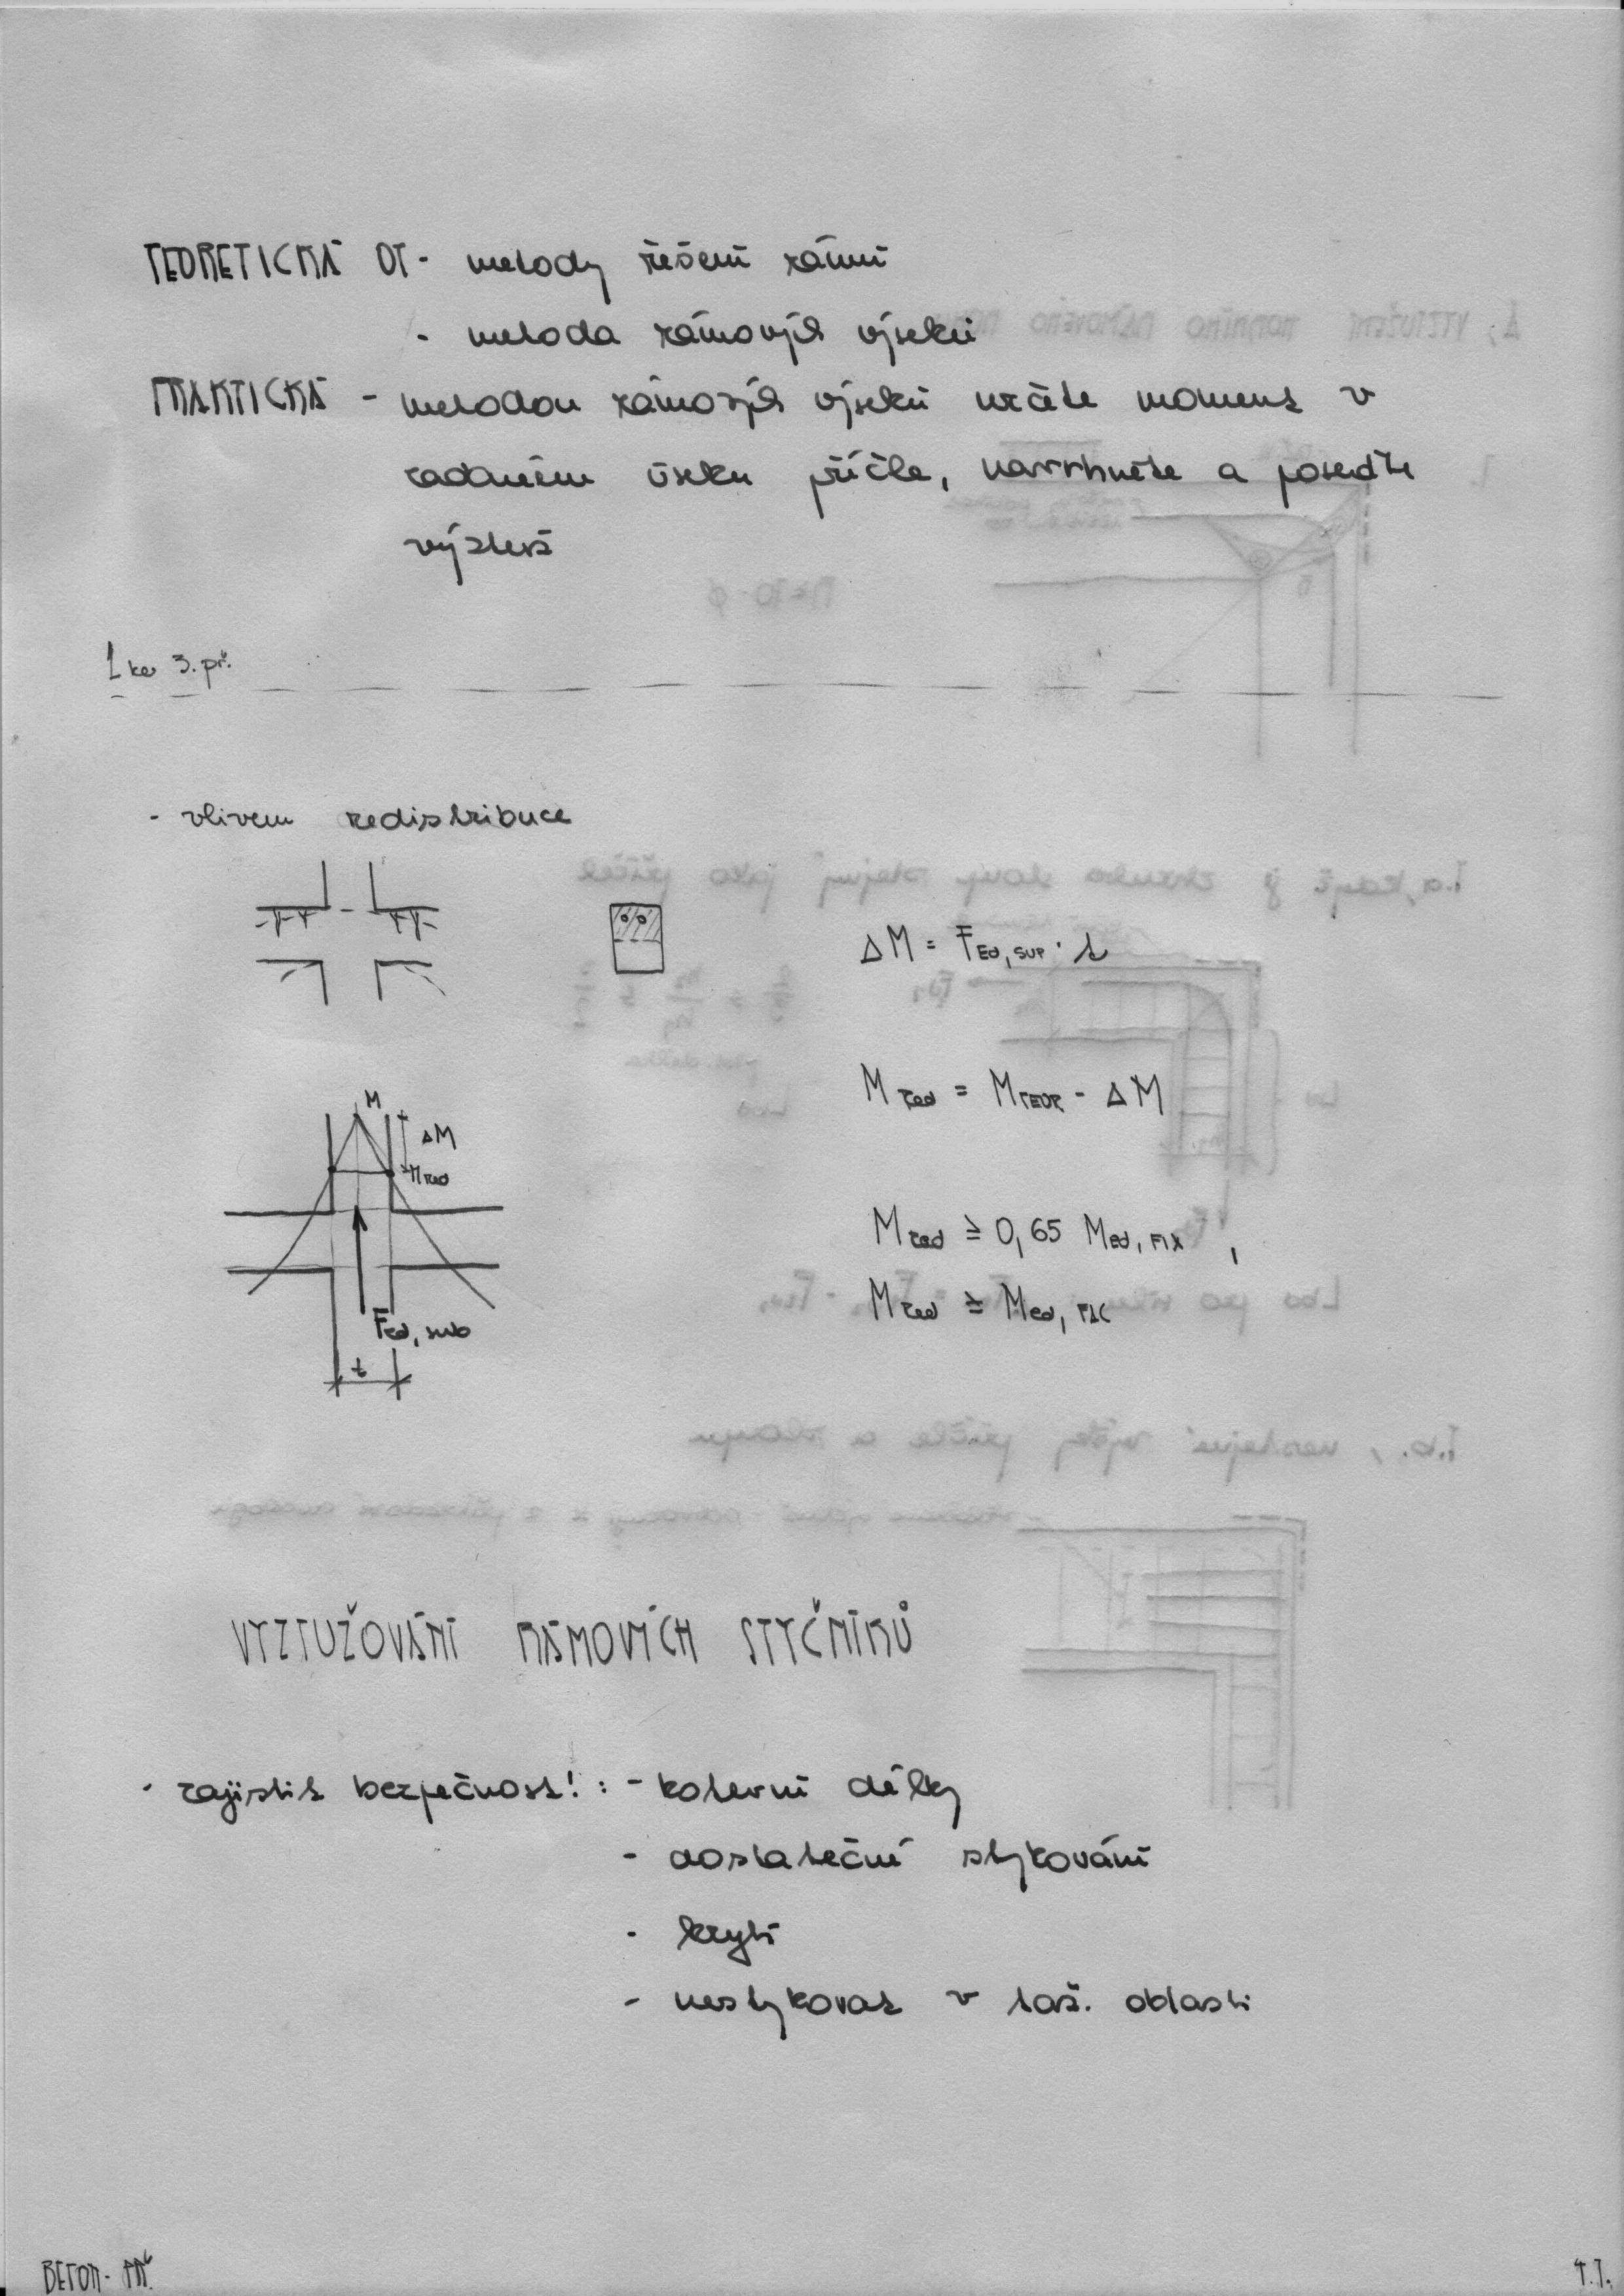 TEORETICKÁ OT - metody řešení rámů
- metoda rámových výseků
PRAKTICKÁ - metodou rámových výseků určete moment v
zadaném úseku příčle, navrhněte a posuďte
výztuž
1 ke 3. př.
- vlivem redistribuce
ΔM = F Ed, SUP · t
M red = M TEOR - ΔM
M
ΔM
M red
M red ≥ 0,65 M Ed, FIX ,
M red ≥ M Ed, FAC
F Ed, sub
t
VYZTUŽOVÁNÍ RÁMOVÝCH STYČNÍKŮ
- zajistit bezpečnost! : - kotevní délky
- dostatečné stykování
- krytí
- nestykovat v taž. oblasti
BETON - PŘ.
4.7.